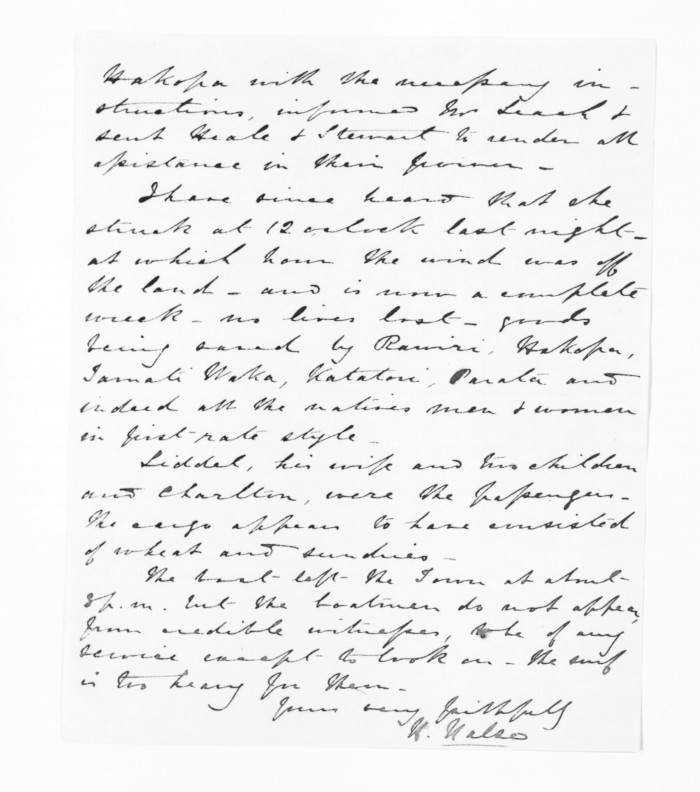 Hakopa with the necessary in-
structions, informed Mr Leach &
sent Heale & Stewart to render all
assistance in their power -
I have since heard that she
struck at 12 oclock last night -
at which hour the wind was off
the land - and is now a complete
wreck - no lives lost - goods
being saved by Rawiri, Hakopa,
Tamati Waka, Katatori, Parata and
indeed all the natives men & women
in first rate style -
Liddel, his wife and two children
and Charlton, were the passengers -
the cargo appears to have consisted
of wheat and sundries -
The boat left the Town at about
8 p.m. but the boatmen do not appear,
from credible witnesses, to be of any
service except to look on - the surf
is too heavy for them -
Yours very faithfully
H. Halse